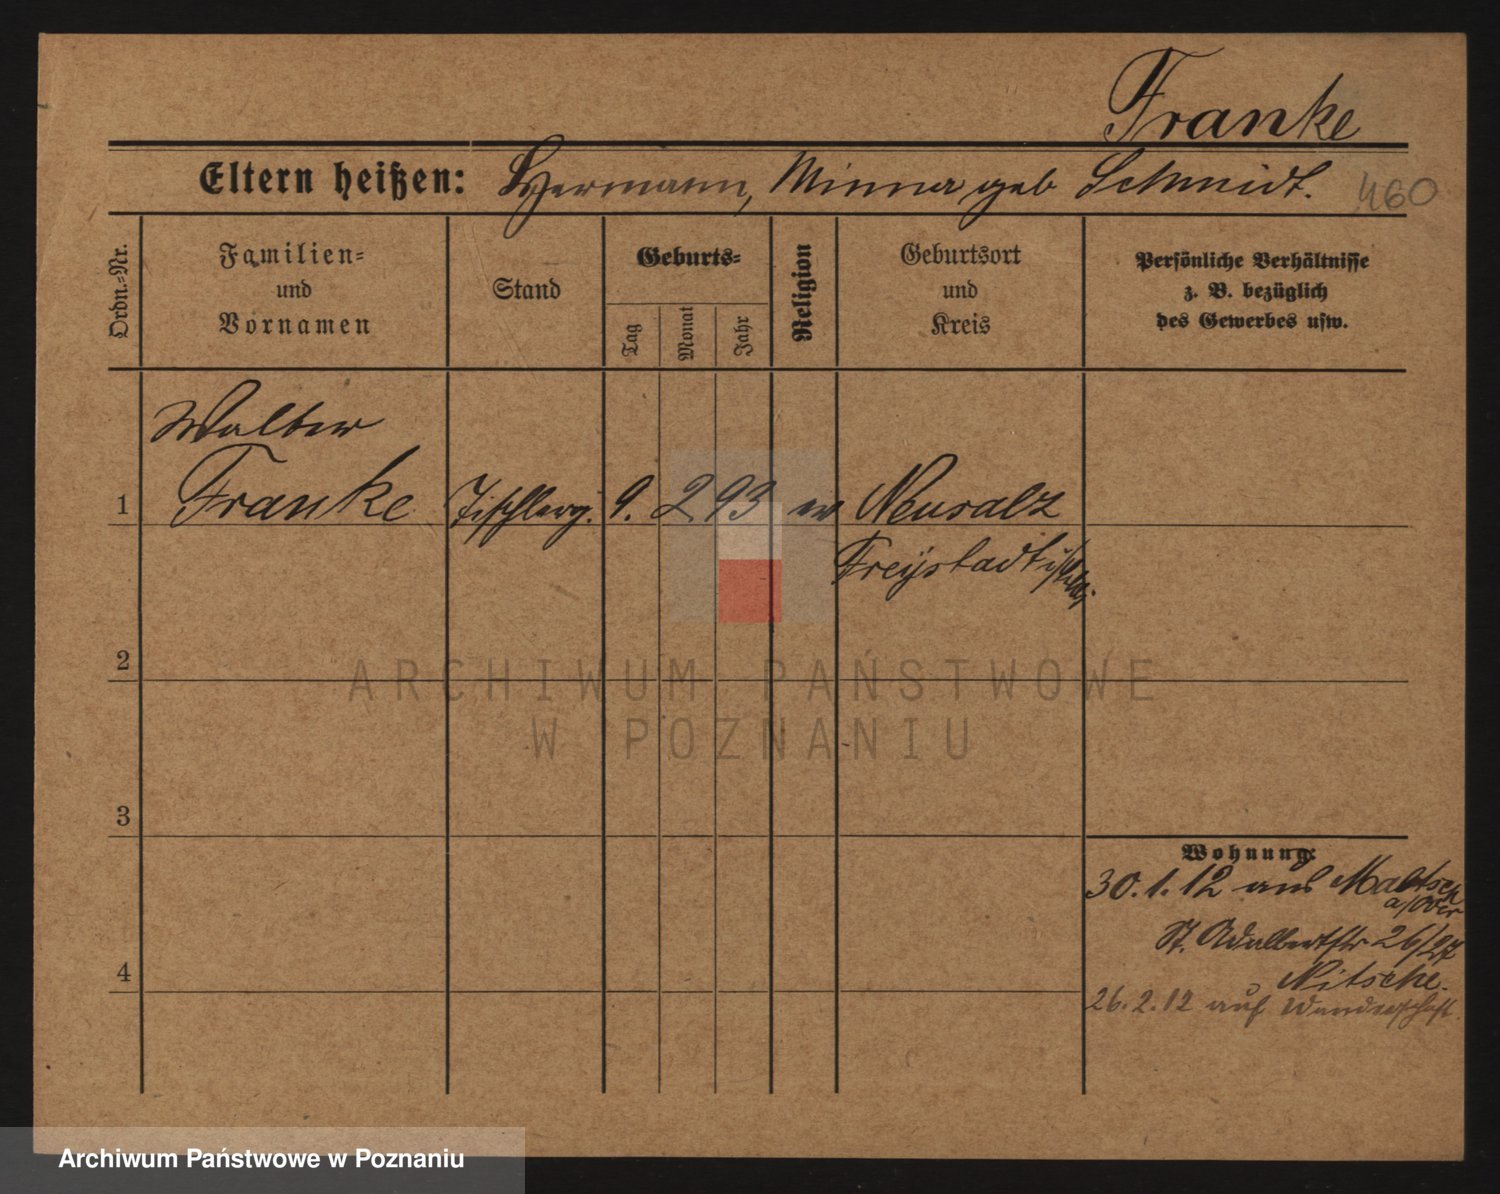 Franke
Eltern heißen: Hermann, Minna geb Schmidt.
460
Ordn.=Nr.
Familien=
und
Vornamen
Stand
Geburts=
Tag
Monat
Jahr
Religion
Geburtsort
und
Kreis
Persönliche Verhältnisse
z. B. bezüglich
des Gewerbes usw.
Walter
1 Franke Tischlerg. 9. 2 93 ev Neusalz
Freystadt i/Schles.
2
ARCHIWUM PAŃSTWOWE
W POZNANIU
3
Wohnung:
30.1.12 aus Maltsch
a/Oder
St. Adalbertstr 26/27
4
Nitsche.
26.2.12 auf Wanderschaft.
Archiwum Państwowe w Poznaniu